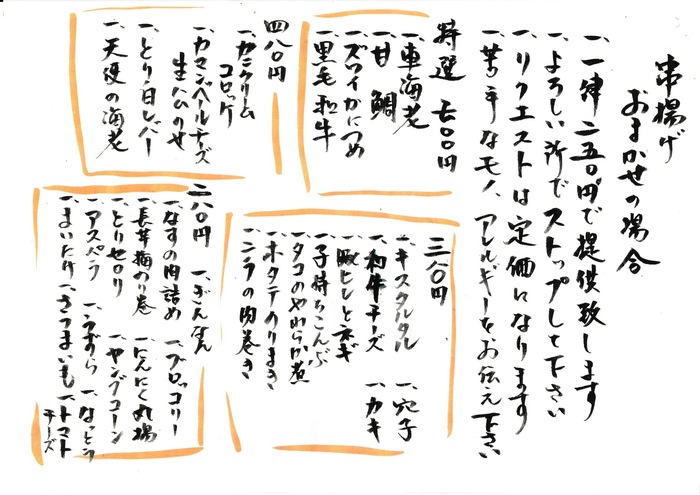 串揚げ
おまかせの場合
一、一律二五〇円で提供致します
一、よろしい所でストップして下さい
一、リクエストは定価になります
一、苦手なモノ、アレルギーをお伝え下さい
特選 七〇〇円
一、車海老
一、甘鯛
一、ズワイかにつめ
一、黒毛和牛
四八〇円
一、カニクリームコロッケ
一、カマンベールチーズ
生ハムのせ
一、とり白レバー
一、天使の海老
三八〇円
一、キスタルタル 一、穴子
一、和牛チーズ 一、カキ
一、豚ヒレとネギ
一、子持ちこんぶ
一、タコのやわらか煮
一、ホタテのりまき
一、ニラの肉巻き
二八〇円 一、ぎんなん
一、なすの肉詰め 一、ブロッコリー
一、長芋梅のり巻 一、にんにく丸揚
一、とりセロリ 一、ヤングコーン
一、アスパラ 一、うずら 一、なっとう
一、まいたけ 一、さつまいも 一、トマト
チーズ